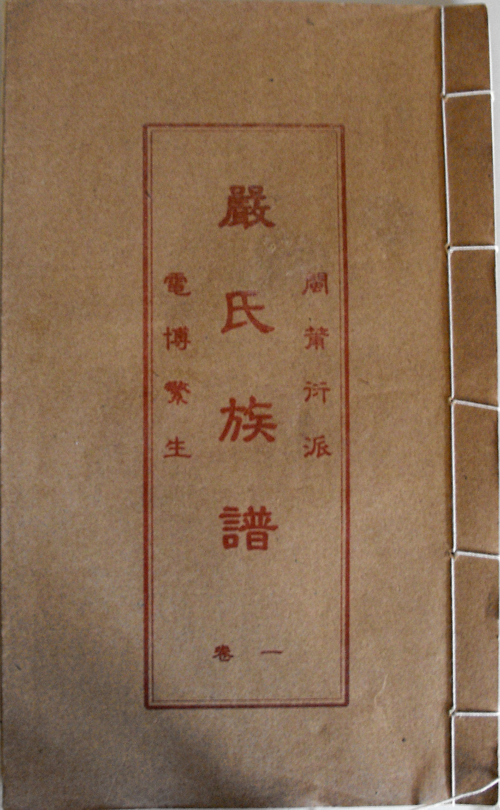 閩莆衍派
嚴氏族譜
電博繁生
卷一